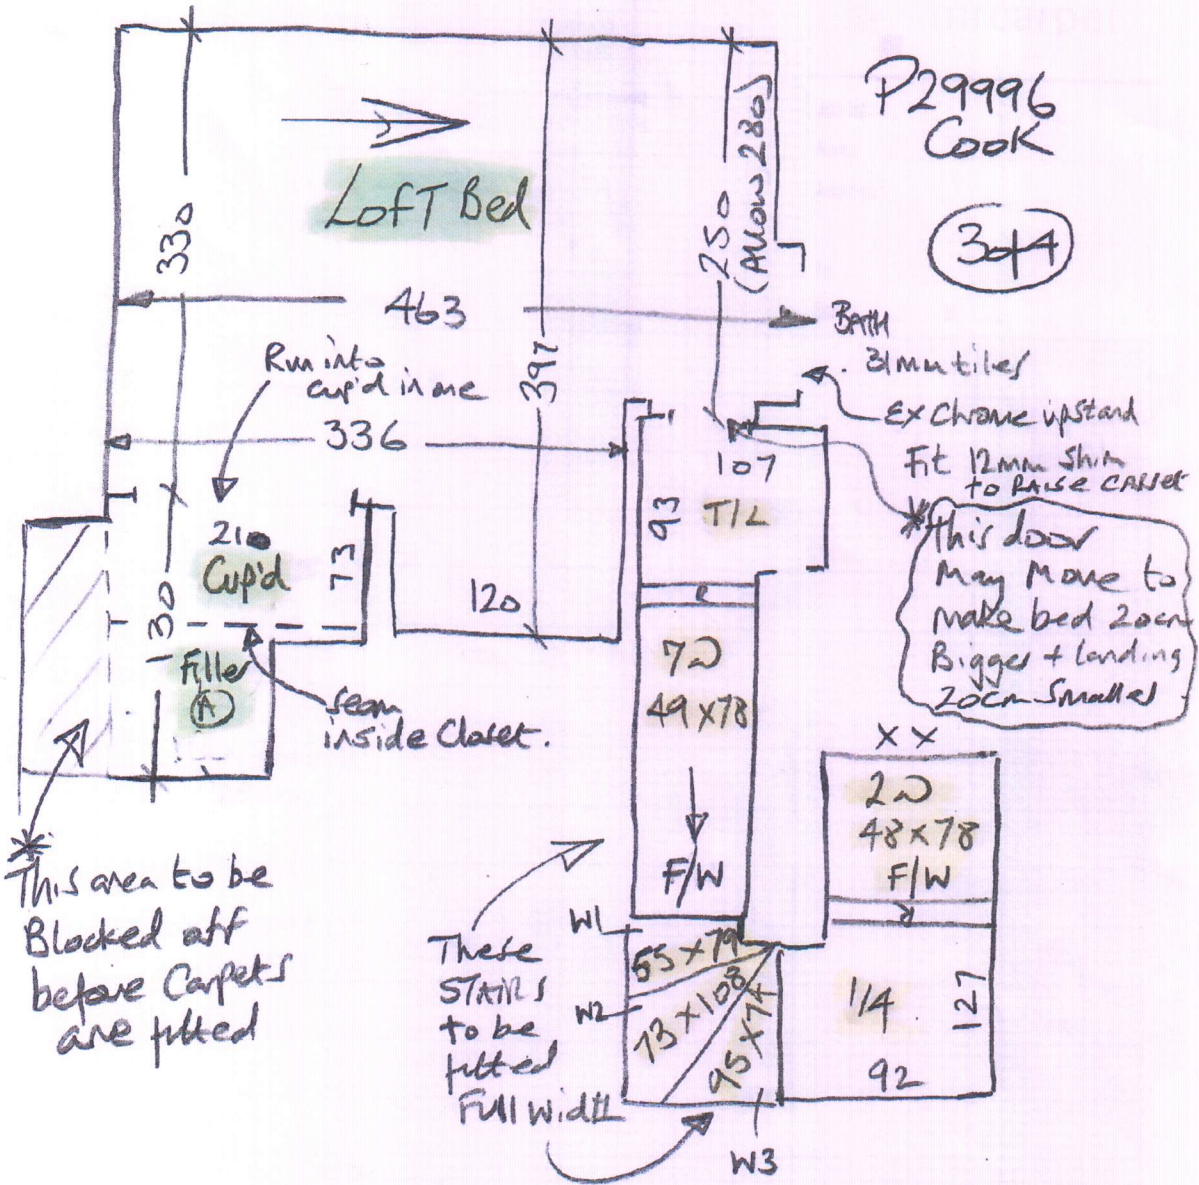 P29996
Cook
3of4
330
Loft Bed
250
(Allow 280)
463
397
BATH
31mm tiles
Ex Chrome upstand
Fit 12mm Shim
to RAISE CARPET
Run into
cup'd in one
336
107
93
T/L
* This door
May Move to
make bed 20cm
Bigger + landing
20cm Smaller
210
Cup'd
73
120
30
Filler
A
Seam
inside Closet.
R
7W
49 x 78
F/W
X X
2W
48 x 78
F/W
R
*
This area to be
Blocked off
before Carpets
are fitted
These
STAIRS
to be
fitted
Full Width
W1
55 x 79
W2
73 x 108
95 x 74
W3
1/4
127
92